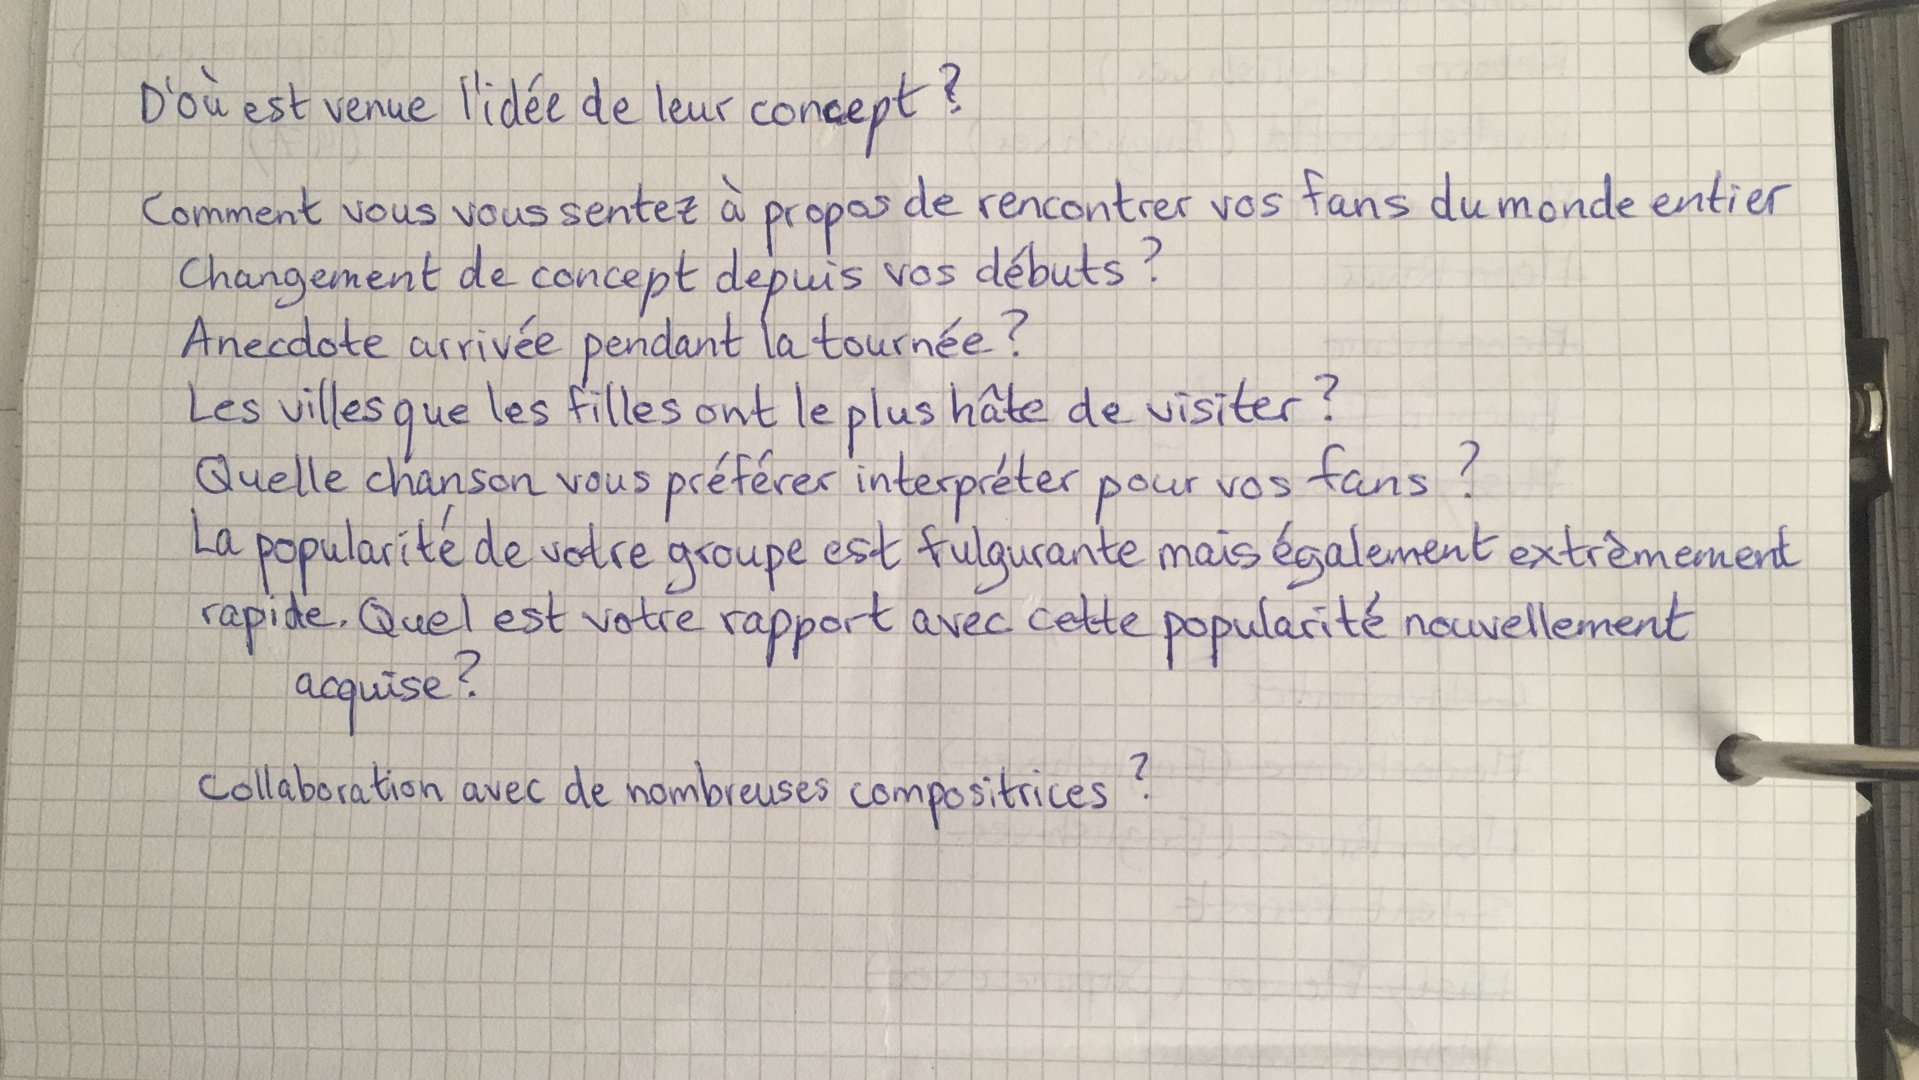 D'où est venue l'idée de leur concept ?
Comment vous vous sentez à propos de rencontrer vos fans du monde entier
Changement de concept depuis vos débuts ?
Anecdote arrivée pendant la tournée ?
Les villes que les filles ont le plus hâte de visiter ?
Quelle chanson vous préférer interpréter pour vos fans ?
La popularité de votre groupe est fulgurante mais également extrêmement
rapide. Quel est votre rapport avec cette popularité nouvellement
acquise ?
Collaboration avec de nombreuses compositrices ?